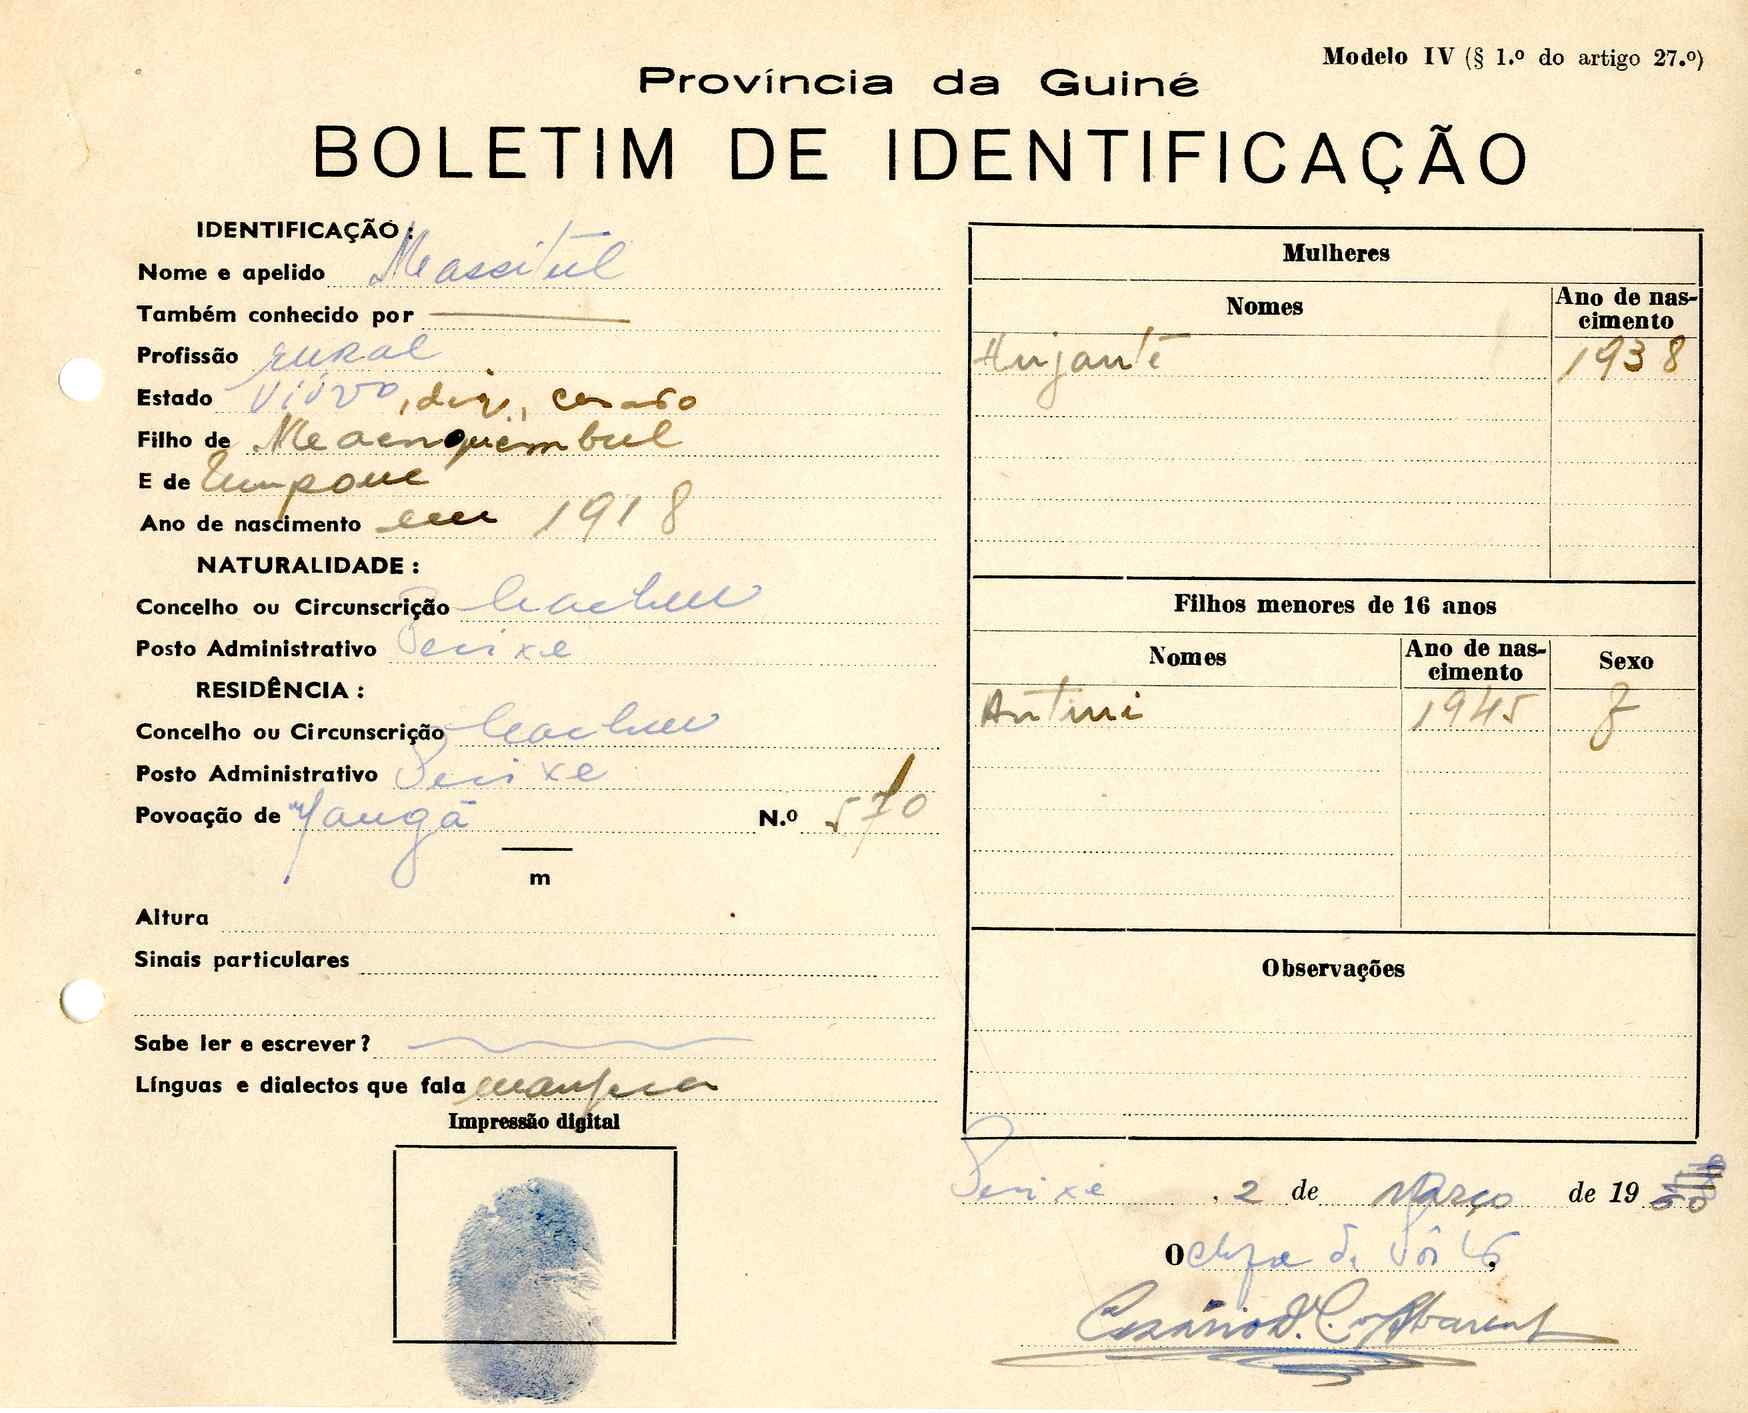 Modelo IV (§ 1.º do artigo 27.º)
Província da Guiné
BOLETIM DE IDENTIFICAÇÃO
IDENTIFICAÇÃO:
Nome e apelido Massitul
Também conhecido por
Profissão rural
Estado viúvo, div., casado
Filho de
E de
Ano de nascimento em 1918
NATURALIDADE:
Concelho ou Circunscrição Cacheu
Posto Administrativo Pecixe
RESIDÊNCIA:
Concelho ou Circunscrição Cacheu
Posto Administrativo Pecixe
Povoação de N.º 570
m
Altura
Sinais particulares
Sabe ler e escrever?
Línguas e dialectos que fala manjaca
Impressão digital
Mulheres
Nomes Ano de nascimento
1938
Filhos menores de 16 anos
Nomes Ano de nascimento Sexo
1945 f
Observações
Pecixe, 2 de Março de 19
O chefe de Pôsto,